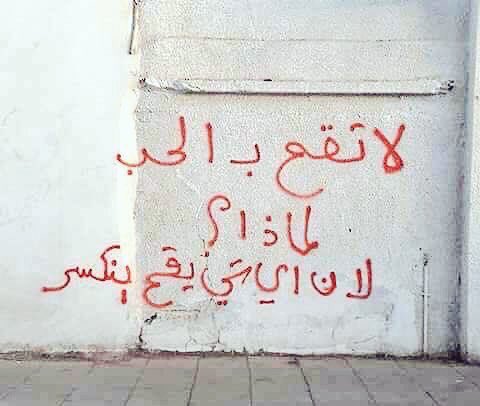 لا تقع ب الحب
لماذا؟
لان اي شي يقع ينكسر